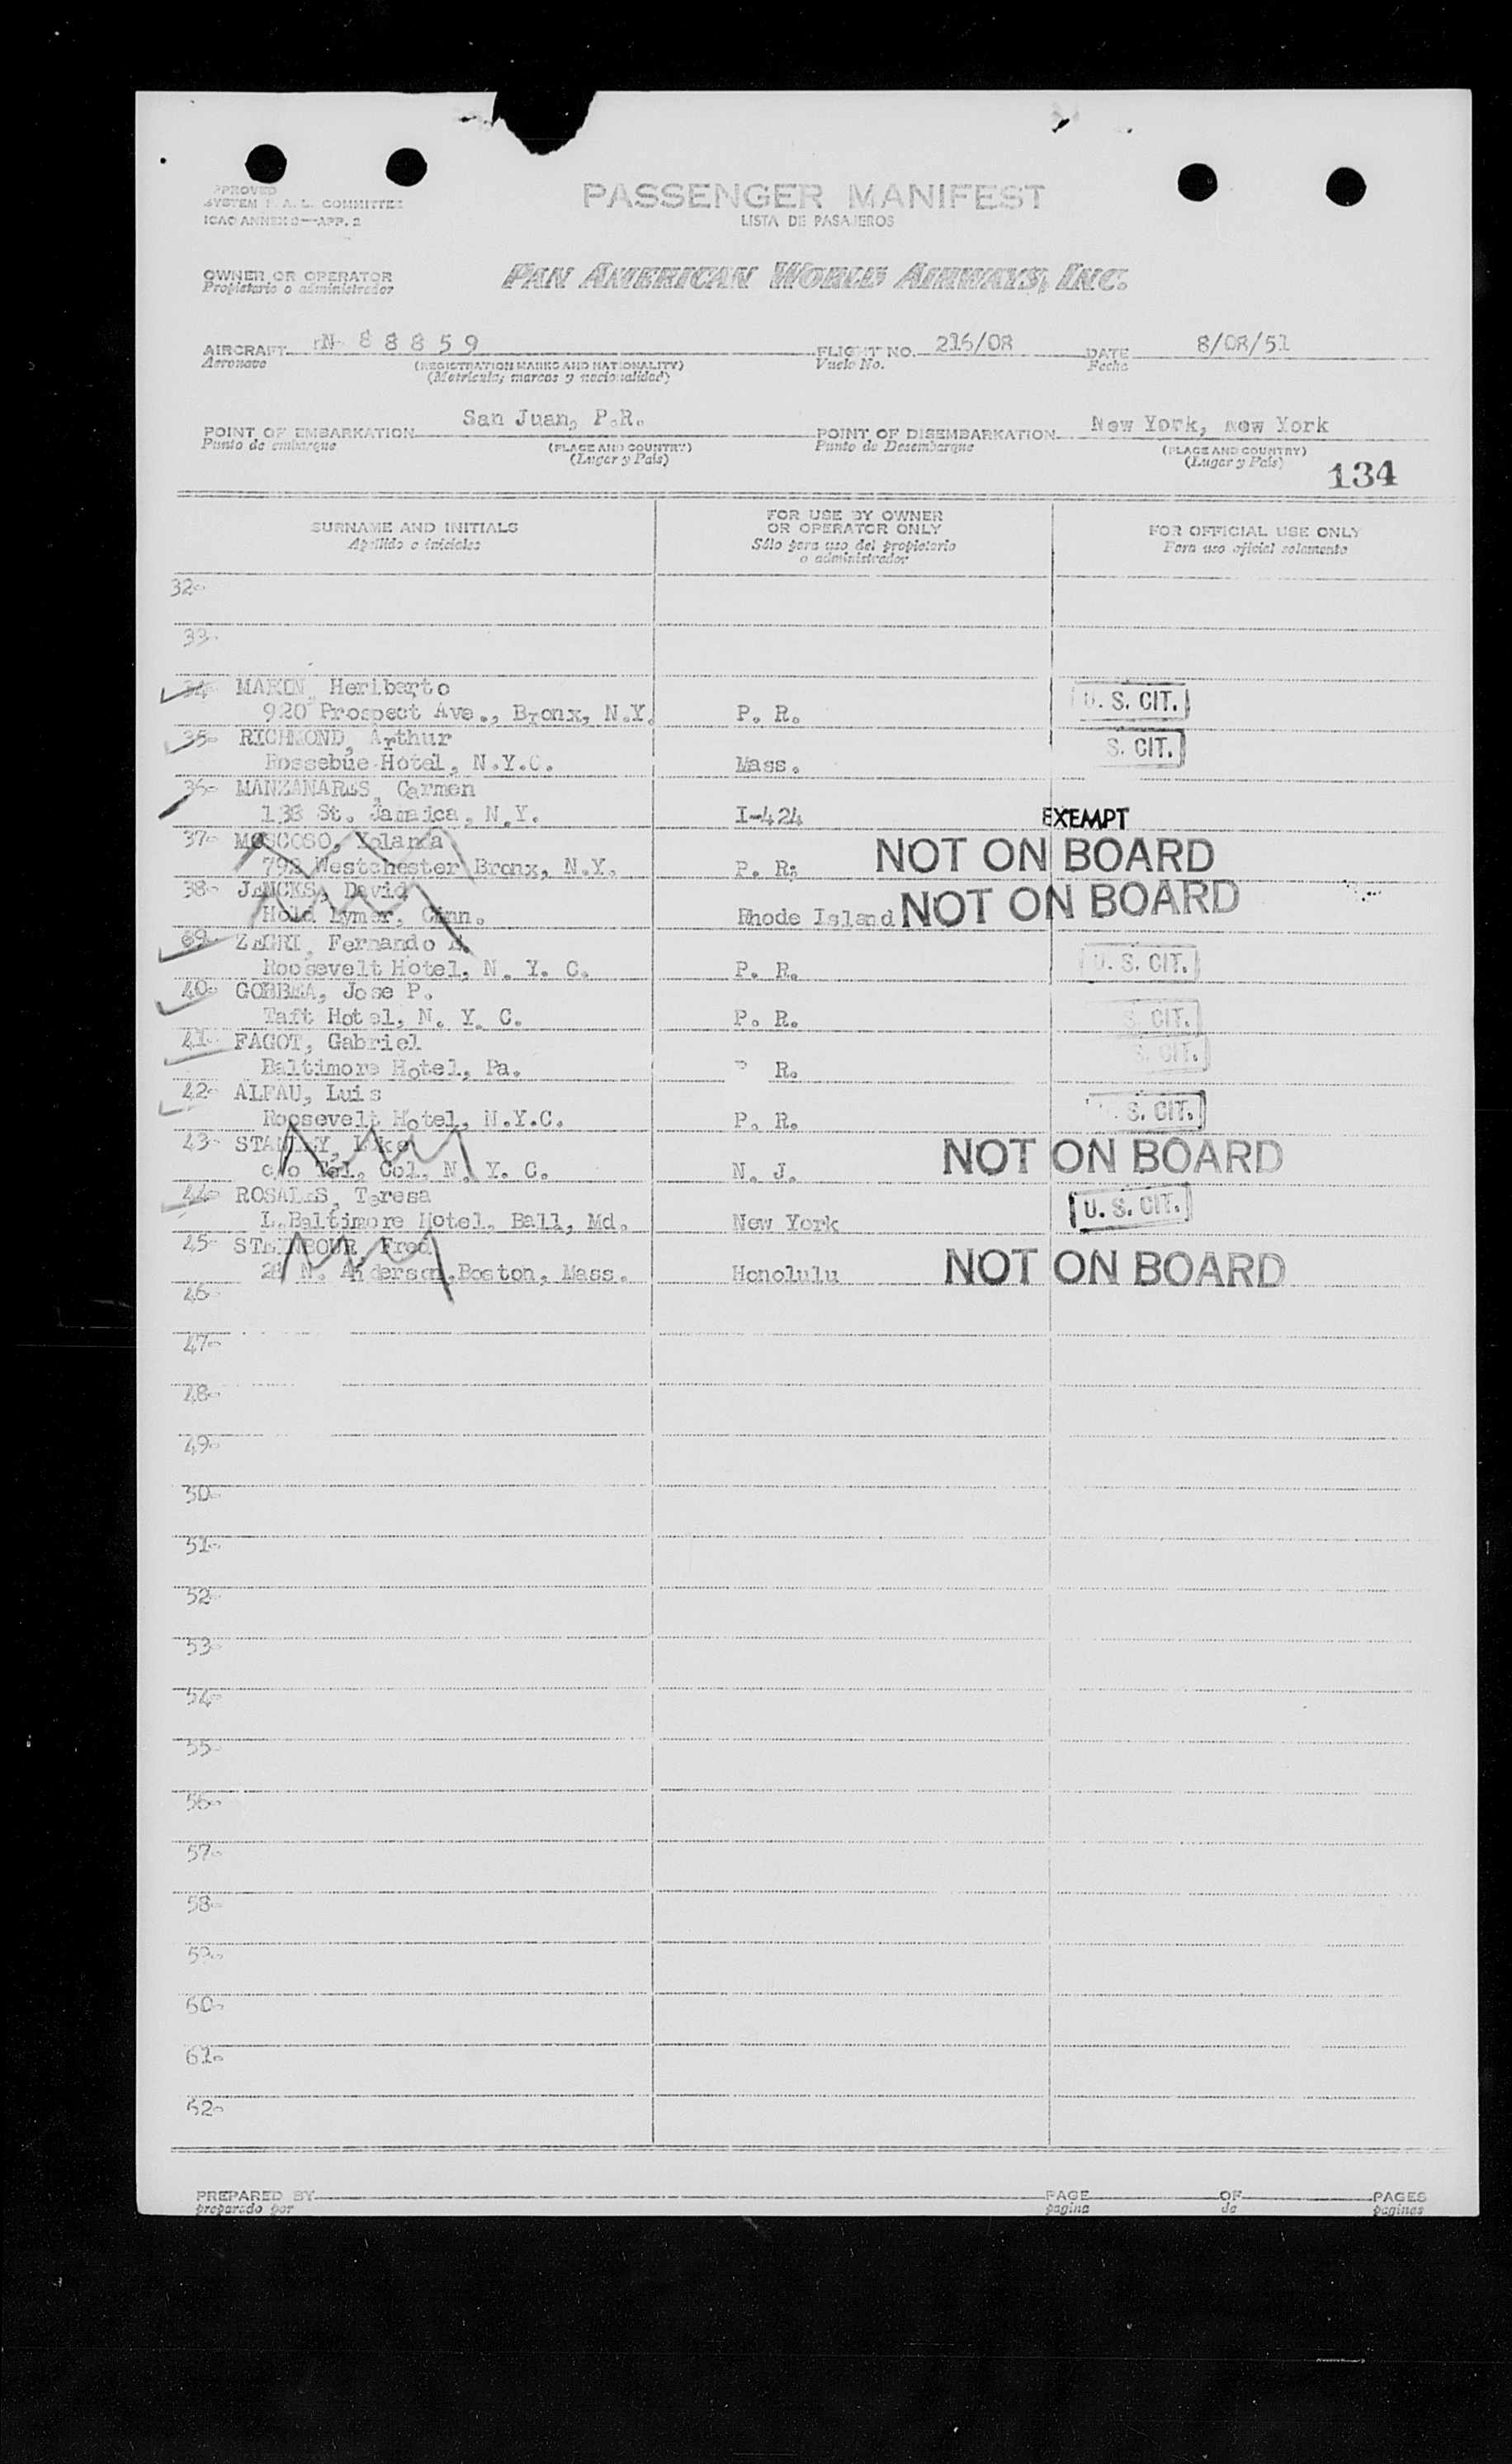 APPROVED
SYSTEM F. A. L. COMMITTEE
ICAO ANNEX 9—APP. 2
PASSENGER MANIFEST
LISTA DE PASAJEROS
OWNER OR OPERATOR
Propietario o administrador
PAN AMERICAN WORLD AIRWAYS, INC.
AIRCRAFT N 8 8 8 5 9 FLIGHT NO. 216/08 DATE 8/08/51
Aeronave (REGISTRATION MARKS AND NATIONALITY) Vuelo No. Fecha
(Matricula; marcas y nacionalidad)
POINT OF EMBARKATION San Juan, P.R. POINT OF DISEMBARKATION New York, New York
Punto de embarque (PLACE AND COUNTRY) Punto de Desembarque (PLACE AND COUNTRY)
(Lugar y País) (Lugar y País)
134
SURNAME AND INITIALS
Apellido e iniciales
FOR USE BY OWNER
OR OPERATOR ONLY
Sólo para uso del propietario
o administrador
FOR OFFICIAL USE ONLY
Para uso oficial solamente
32-
33-
34- MARIN, Heriberto
920 Prospect Ave., Bronx, N.Y. P. R. U. S. CIT.
35- RICHMOND, Arthur
Rossebue Hotel, N.Y.C. Mass. S. CIT.
36- MANZANARES, Carmen
133 St. Jamaica, N.Y. I-424 EXEMPT
37- MOSCOSO, Yolanda
Westchester Bronx, N.Y. P. R; NOT ON BOARD
38- JENCKS, David
Hold Lymer, Conn. Rhode Island NOT ON BOARD
69- ZEGRI, Fernando
Roosevelt Hotel, N. Y. C. P. R. U. S. CIT.
40- GORBEA, Jose P.
Taft Hotel, N. Y. C. P. R. S. CIT.
41- FAGOT, Gabriel
Baltimore Hotel, Pa. P R. S. CIT.
42- ALFAU, Luis
Roosevelt Hotel, N.Y.C. P. R. U. S. CIT.
43- STANLEY,
c/o Col. N. Y. C. N. J. NOT ON BOARD
44- ROSALES, Teresa
L.Baltimore Hotel, Ball, Md. New York U. S. CIT.
45- Fred
N. Anderson, Boston, Mass. Honolulu NOT ON BOARD
46-
47-
48-
49-
50-
51-
52-
53-
54-
55-
56-
57-
58-
59-
60-
61-
62-
PREPARED BY PAGE OF PAGES
preparado por pagina de paginas